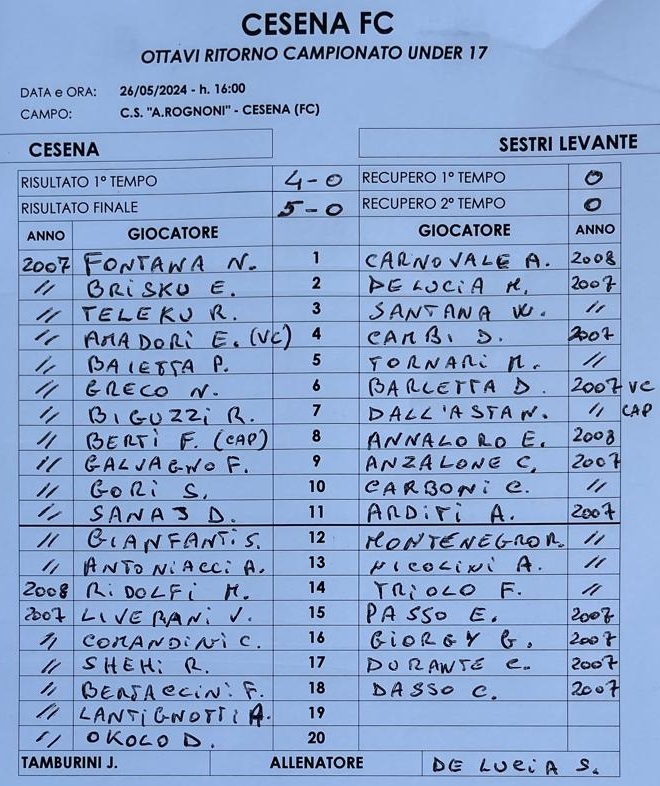 CESENA FC
OTTAVI RITORNO CAMPIONATO UNDER 17
DATA e ORA: 26/05/2024 - h. 16:00
CAMPO: C.S. "A.ROGNONI" - CESENA (FC)
CESENA SESTRI LEVANTE
RISULTATO 1° TEMPO 4-0 RECUPERO 1° TEMPO 0
RISULTATO FINALE 5-0 RECUPERO 2° TEMPO 0
ANNO GIOCATORE GIOCATORE ANNO
2007 FONTANA N. 1 CARNOVALE A. 2008
// BRISKU E. 2 DE LUCIA M. 2007
// TELEKU R. 3 SANTANA W. //
// AMADORI E. (VC) 4 CAMBI D. 2007
// BAIETTA P. 5 TORNARI M. //
// GRECO N. 6 BARLETTA D. 2007 VC
// BIGUZZI R. 7 DALL'ASTA N. // CAP
// BERTI F. (CAP) 8 ANNALORO E. 2008
// GALVAGNO F. 9 ANZALONE C, 2007
// GORI S. 10 CARBONI C. //
// D. 11 ARDITI A. 2007
// GIANFANTI S. 12 MONTENEGRO R. //
// ANTONIACCI A. 13 NICOLINI A. //
2008 RIDOLFI M. 14 TRIOLO F. //
2007 LIVERANI V. 15 PASSO E. 2007
// COMANDINI C. 16 GIORGY G. 2007
// SHEHI R. 17 DURANTE C. 2007
// BERTACCINI F. 18 DASSO C. 2007
// LANTIGNOTTI A. 19
// OKOLO D. 20
TAMBURINI J. ALLENATORE DE LUCIA S.